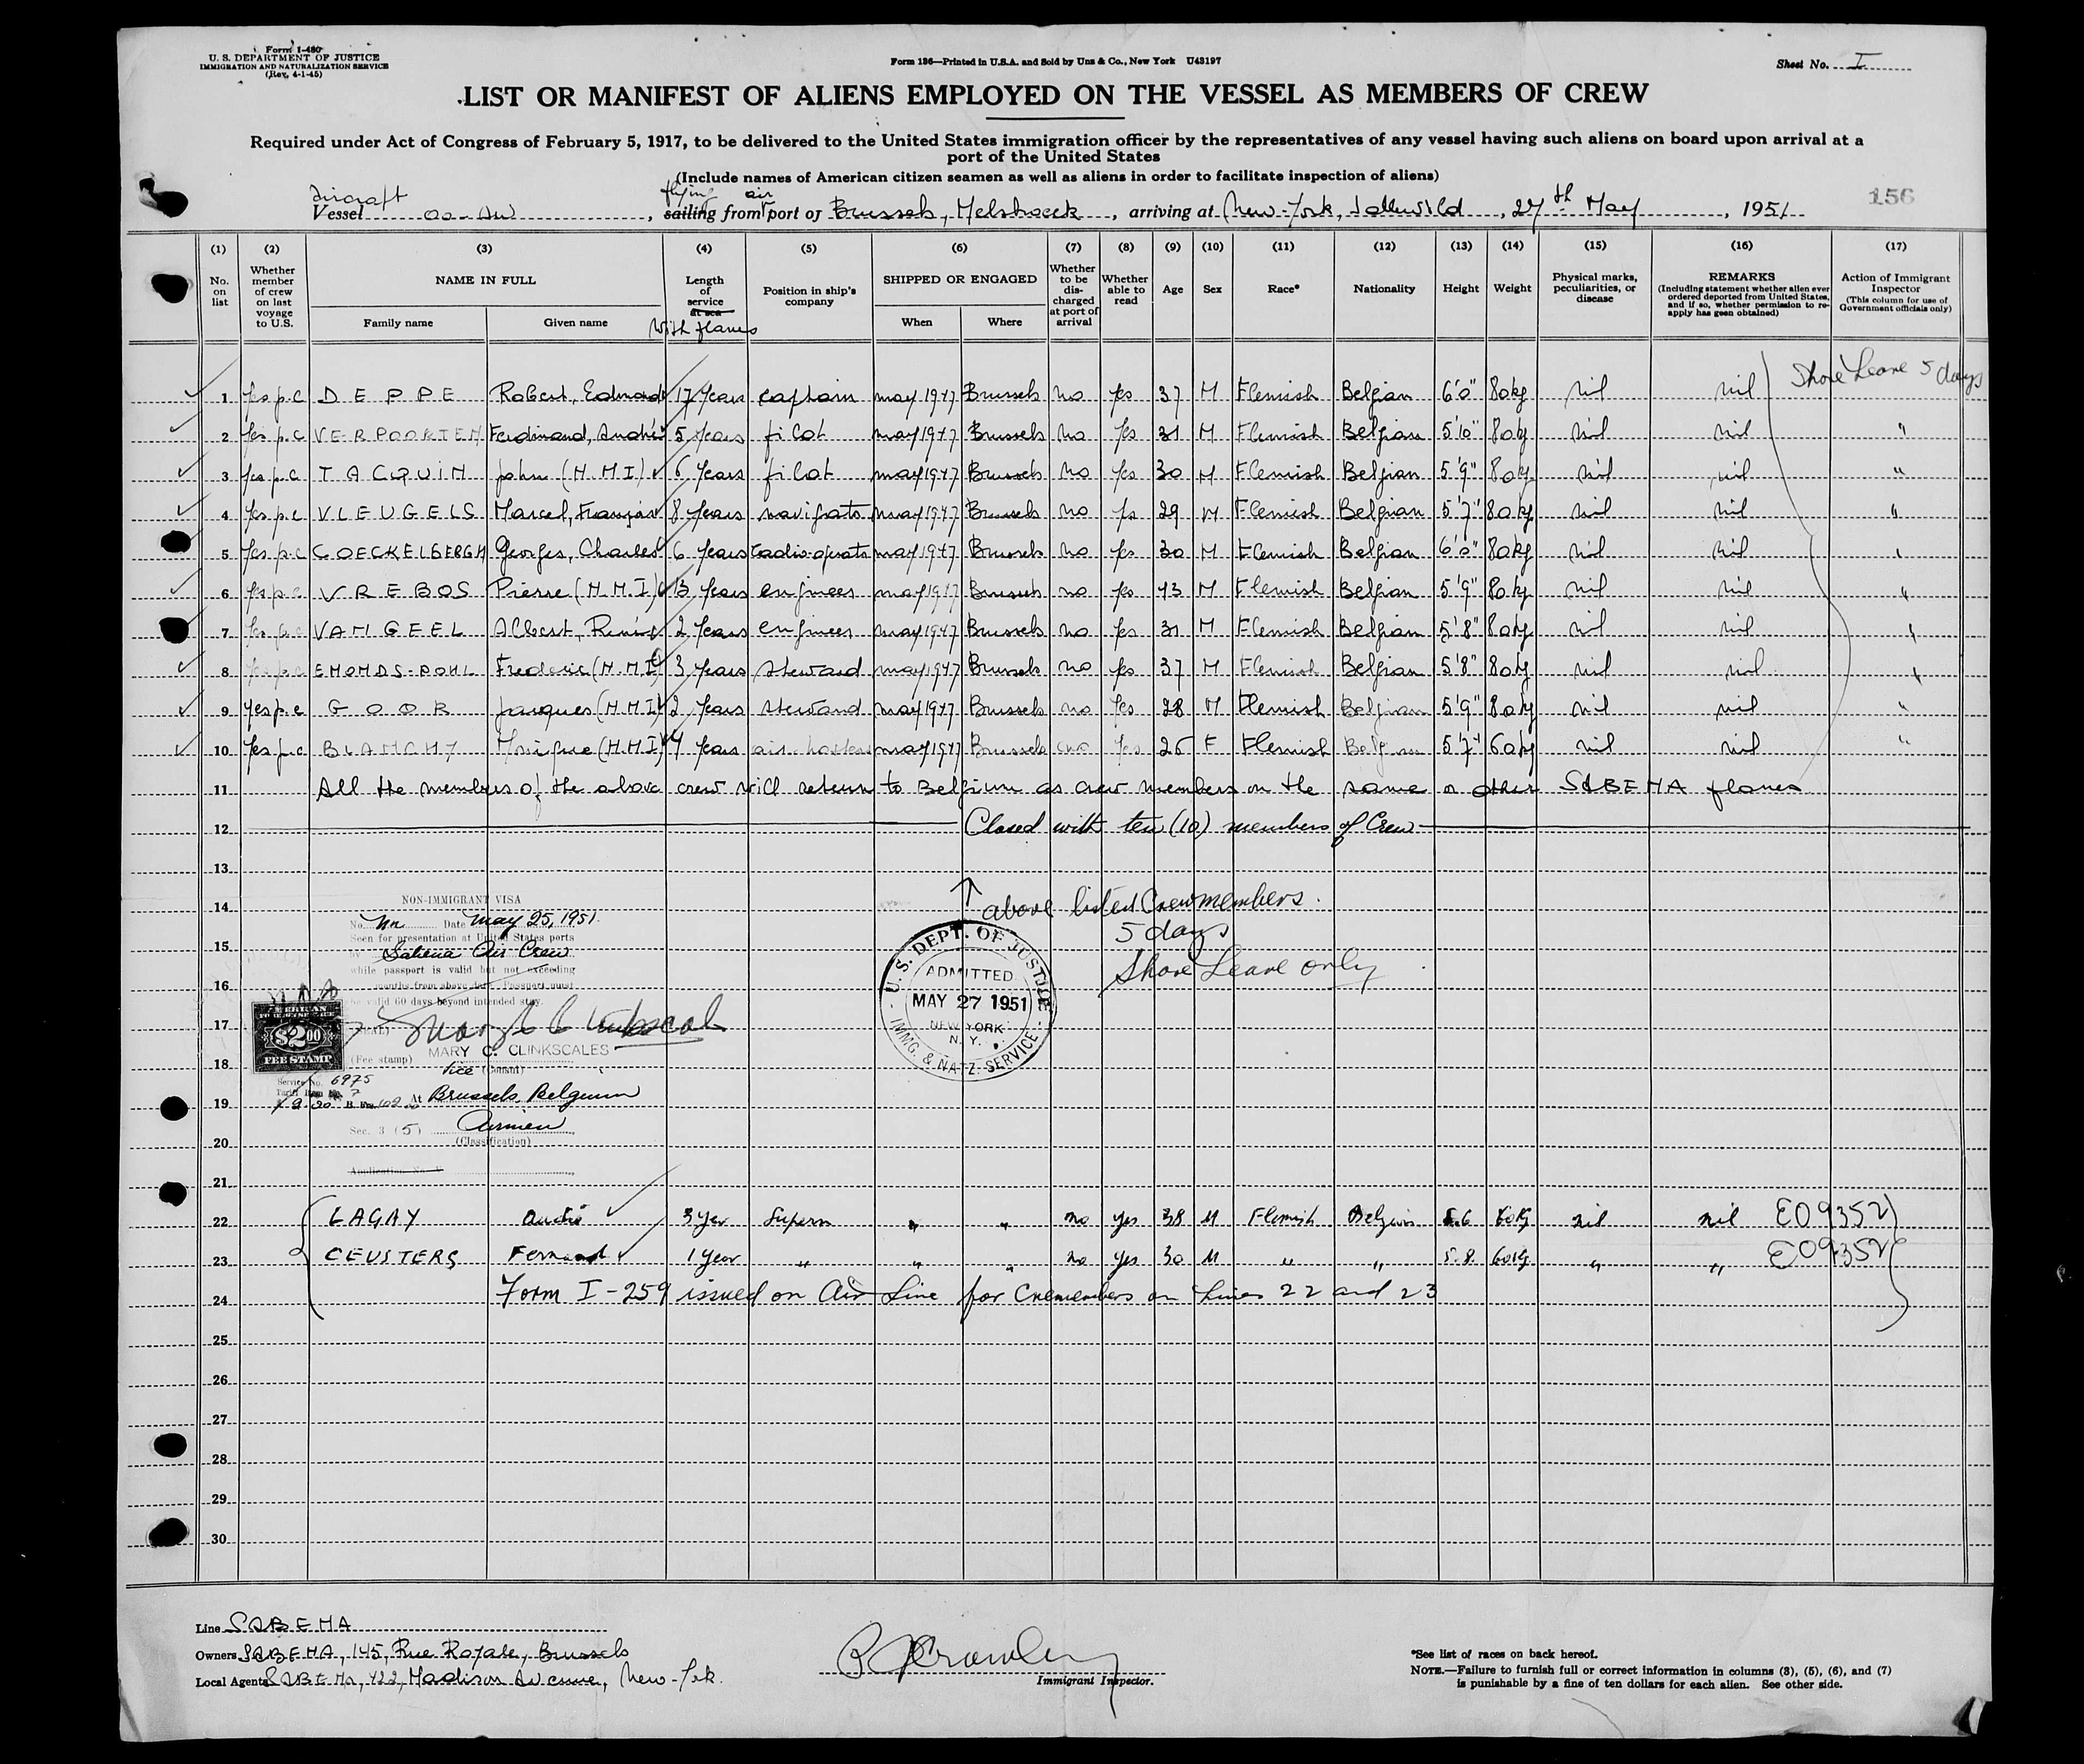 Form I-480
U. S. DEPARTMENT OF JUSTICE
IMMIGRATION AND NATURALIZATION SERVICE
(Rev. 4-1-45)
Form 136—Printed in U.S.A. and Sold by Unz & Co., New York U43197
Sheet No. I
LIST OR MANIFEST OF ALIENS EMPLOYED ON THE VESSEL AS MEMBERS OF CREW
Required under Act of Congress of February 5, 1917, to be delivered to the United States immigration officer by the representatives of any vessel having such aliens on board upon arrival at a
port of the United States
(Include names of American citizen seamen as well as aliens in order to facilitate inspection of aliens)
aircraft flying air
Vessel , sailing from port of Brussels, Melsbroeck , arriving at New-York, Idlewild , 27th May , 1951
156
(1) (2) (3) (4) (5) (6) (7) (8) (9) (10) (11) (12) (13) (14) (15) (16) (17)
No. on list
Whether member of crew on last voyage to U.S.
NAME IN FULL
Family name Given name
Length of service at sea
with planes
Position in ship's company
SHIPPED OR ENGAGED
When Where
Whether to be discharged at port of arrival
Whether able to read
Age Sex Race* Nationality Height Weight
Physical marks, peculiarities, or disease
REMARKS
(Including statement whether alien ever ordered deported from United States, and if so, whether permission to reapply has geen obtained)
Action of Immigrant Inspector
(This column for use of Government officials only)
Shore Leave 5 days
1 Yes p.c DEPPE Robert, Edmond 17 Years captain may 1947 Brussels no Yes 37 M Flemish Belgian 6'0" 80kg nil nil
2 Yes p.c VERPOORTEN Ferdinand, André 5 Years pilot may 1947 Brussels no Yes 31 M Flemish Belgian 5'10" 80kg nil nil "
3 Yes p.c TACQUIN John (N.M.I) 6 Years pilot may 1947 Brussels no Yes 30 M Flemish Belgian 5'9" 80kg nil nil "
4 Yes p.c VLEUGELS Marcel, François 8 Years navigator may 1947 Brussels no Yes 29 M Flemish Belgian 5'7" 80kg nil nil "
5 Yes p.c COECKELBERGH Georges, Charles 6 Years radio-operator may 1947 Brussels no Yes 30 M Flemish Belgian 6'0" 80kg nil nil "
6 Yes p.c VREBOS Pierre (N.M.I) 13 Years engineer may 1947 Brussels no Yes 43 M Flemish Belgian 5'9" 80kg nil nil "
7 Yes p.c VAN GEEL Albert, René 2 Years engineer may 1947 Brussels no Yes 31 M Flemish Belgian 5'8" 80kg nil nil "
8 Yes p.c EMONDS-POHL Frederic (N.M.I) 3 Years steward may 1947 Brussels no Yes 37 M Flemish Belgian 5'8" 80kg nil nil "
9 Yes p.c GOOR Jacques (N.M.I) 2 Years steward may 1947 Brussels no Yes 28 M Flemish Belgian 5'9" 80kg nil nil "
10 Yes p.c BLANCHY Monique (N.M.I) 4 Years air-hostess may 1947 Brussels no Yes 26 F Flemish Belgian 5'7" 60kg nil nil "
11 All the members of the above crew will return to Belgium as crew members on the same or other SABENA planes
12 Closed with ten (10) members of Crew
13
14 above listed Crewmembers.
15 5 days
16 Shore Leave only
17
18
19
20
21
NON-IMMIGRANT VISA
No. Date May 25, 1951
Seen for presentation at United States ports
by Sabena Air Crew
while passport is valid but not exceeding
months from above date. Passport must
be valid 60 days beyond intended stay.
(SEAL)
MARY C. CLINKSCALES
(Fee stamp) Vice (Consul)
AMERICAN
$2.00
FEE STAMP
Service No. 6975
Tariff Item No. 7
At Brussels, Belgium
Sec. 3 (5) Airmen
(Classification)
Application No. V
U. S. DEPT. OF JUSTICE
ADMITTED
MAY 27 1951
NEW YORK
N. Y.
IMMG. & NATZ. SERVICE
22 LAGAY André 3 yer Supern " " no yes 38 M Flemish Belgian 5.6 60kg nil nil E09352
23 CEUSTERS Fernand 1 year " " " no yes 30 M " " 5.8. 60kg " " E09352
24 Form I-259 issued on Air Line for Crewmembers on Lines 22 and 23
25
26
27
28
29
30
Line SABENA
Owners SABENA, 145, Rue Royale, Brussels
Local Agents SABENA, 422, Madison Avenue, New-York.
Immigrant Inspector.
*See list of races on back hereof.
NOTE.—Failure to furnish full or correct information in columns (3), (5), (6), and (7)
is punishable by a fine of ten dollars for each alien. See other side.